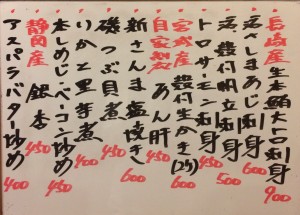 長崎産 生本鮪大トロ刺身 900
活〆さしまあじ刺身 600
活殻付帆立刺身 500
トロサーモン刺身 450
宮城産 殻付生かき(2ケ) 600
自家製 あん肝 450
新さんま塩焼き 600
磯つぶ貝煮 450
いかと里芋煮 400
本しめじベーコン炒め 450
静岡産 銀杏 450
アスパラバター炒め 400